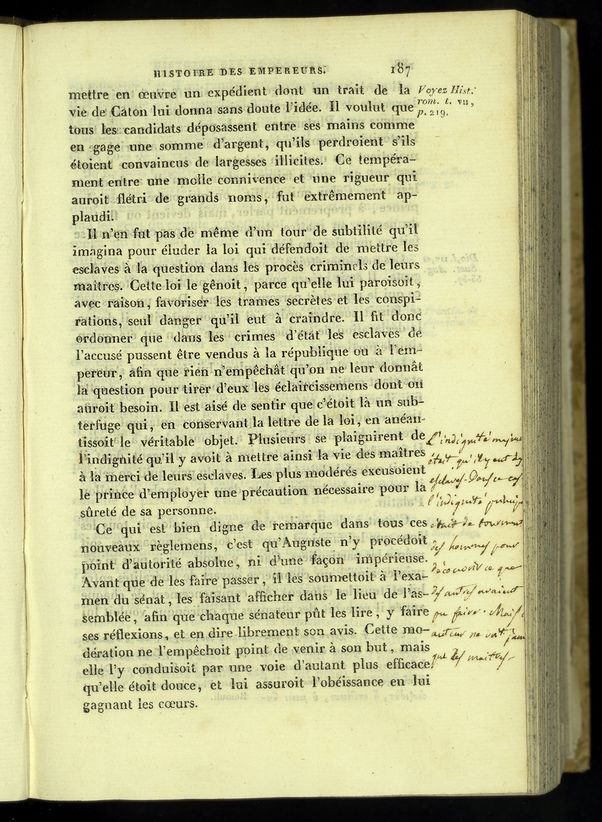 HISTOIRE DES EMPEREURS. 187
mettre en œuvre un expédient dont un trait de la
vie de Caton lui donna sans doute l'idée. Il voulut que
tous les candidats déposassent entre ses mains comme
en gage une somme d'argent, qu'ils perdroient s'ils
étoient convaincus de largesses illicites. Ce tempéra-
ment entre une molle connivence et une rigueur qui
auroit flétri de grands noms, fut extrêmement ap-
plaudi.
Voyez Hist.
rom. t. VII,
p. 219.
Il n'en fut pas de même d'un tour de subtilité qu'il
imagina pour éluder la loi qui défendoit de mettre les
esclaves à la question dans les procès criminels de leurs
maîtres. Cette loi le gênoit, parce qu'elle lui paroisoit,
avec raison, favoriser les trames secrètes et les conspi-
rations, seul danger qu'il eut à craindre. Il fit donc
ordonner que dans les crimes d'état les esclaves de
l'accusé pussent être vendus à la république ou à l'em-
pereur, afin que rien n'empêchât qu'on ne leur donnât
la question pour tirer d'eux les éclaircissemens dont on
auroit besoin. Il est aisé de sentir que c'étoit là un sub-
terfuge qui, en conservant la lettre de la loi, en anéan-
tissoit le véritable objet. Plusieurs se plaignirent de
l'indignité qu'il y avoit à mettre ainsi la vie des maîtres
à la merci de leurs esclaves. Les plus modérés excusoient
le prince d'employer une précaution nécessaire pour la
sûreté de sa personne.
Ce qui est bien digne de remarque dans tous ces
nouveaux règlemens, c'est qu'Auguste n'y procédoit
point d'autorité absolue, ni d'une façon impérieuse.
Avant que de les faire passer, il les soumettoit à l'exa-
men du sénat, les faisant afficher dans le lieu de l'as-
semblée, afin que chaque sénateur pût les lire, y faire
ses réflexions, et en dire librement son avis. Cette mo-
dération ne l'empêchoit point de venir à son but, mais
elle l'y conduisoit par une voie d'autant plus efficace
qu'elle étoit douce, et lui assuroit l'obéissance en lui
gagnant les cœurs.
L'indignité
était qu'il y eut des
esclaves. Dans ce cas
l'indignité
était de
des hommes pour
découvrir ce que
des autres avaient
pu faire. Mais l
auteur ne voit
que des maîtres.